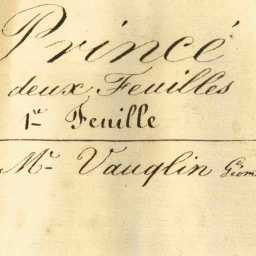 Princé
deux Feuilles
1re Feuille
Mr Vauglin Géom